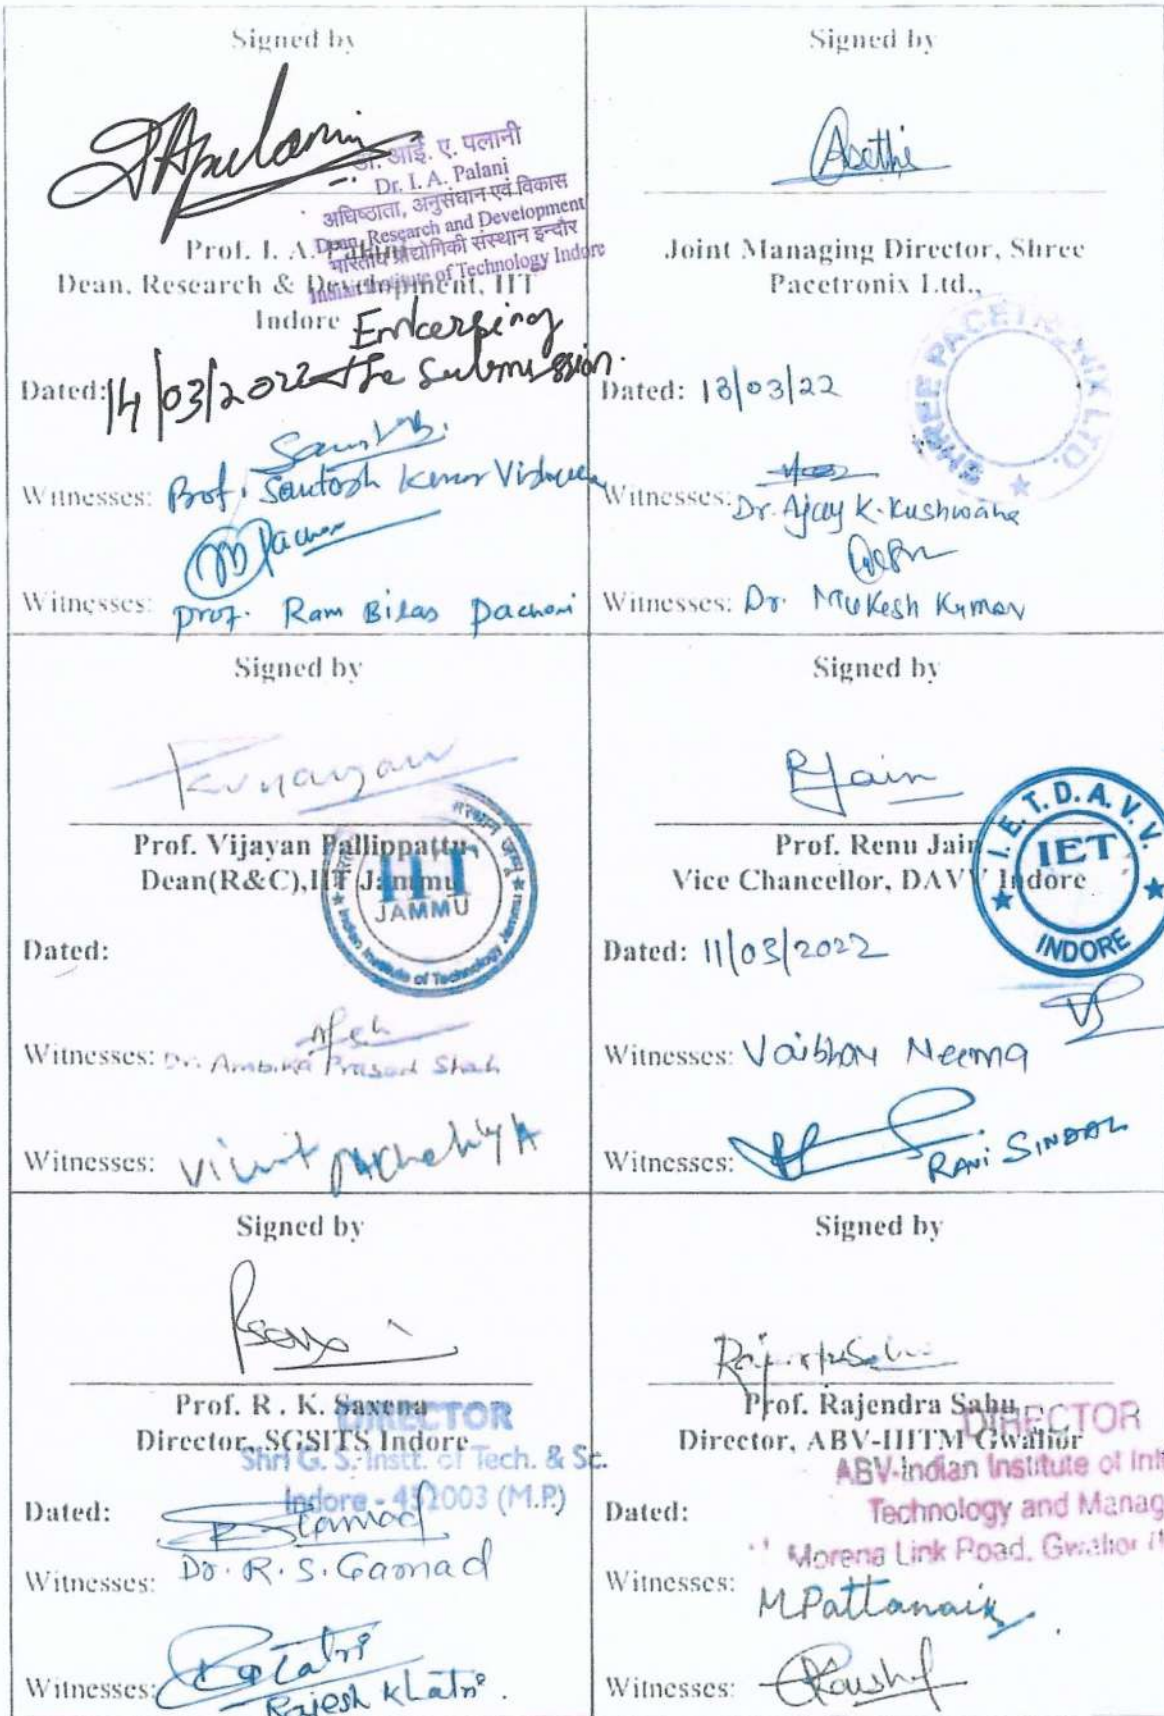 Signed by
डॉ. आई. ए. पलानी
Dr. I. A. Palani
अधिष्ठाता, अनुसंधान एवं विकास
Dean, Research and Development
भारतीय प्रौद्योगिकी संस्थान इन्दौर
Indian Institute of Technology Indore
Prof. I. A. Palani
Dean, Research & Development, IIT
Indore
the Submission.
Dated: 14/03/2022
Witnesses: Prof. Santosh Kumar
Witnesses: Prof. Ram Bilas Pachori
Signed by
Joint Managing Director, Shree
Pacetronix Ltd.,
SHREE PACETRONIX LTD.
Dated: 13/03/22
Witnesses: Dr. Ajay K. Kushwaha
Witnesses: Dr. Mukesh Kumar
Signed by
Prof. Vijayan Pallippattu
Dean(R&C),IIT Jammu
IIT
JAMMU
Indian Institute of Technology Jammu
Dated:
Witnesses: Dr. Ambika Prasad Shah
Witnesses: Vinit
Signed by
RJain
Prof. Renu Jain
Vice Chancellor, DAVV Indore
I.E.T. D.A.V.V.
IET
INDORE
Dated: 11/03/2022
Witnesses: Vaibhav Neema
Witnesses: RAVI SINDAL
Signed by
Prof. R . K. Saxena
Director, SGSITS Indore
DIRECTOR
Shri G. S. Instt. of Tech. & Sc.
Indore - 452003 (M.P.)
Dated:
Witnesses: Dr. R. S. Gamad
Witnesses: Rajesh Khatri.
Signed by
Prof. Rajendra Sahu
Director, ABV-IIITM Gwalior
DIRECTOR
ABV-Indian Institute of Inf
Technology and Manag
Morena Link Road, Gwalior
Dated:
Witnesses: M Pattanaik
Witnesses: